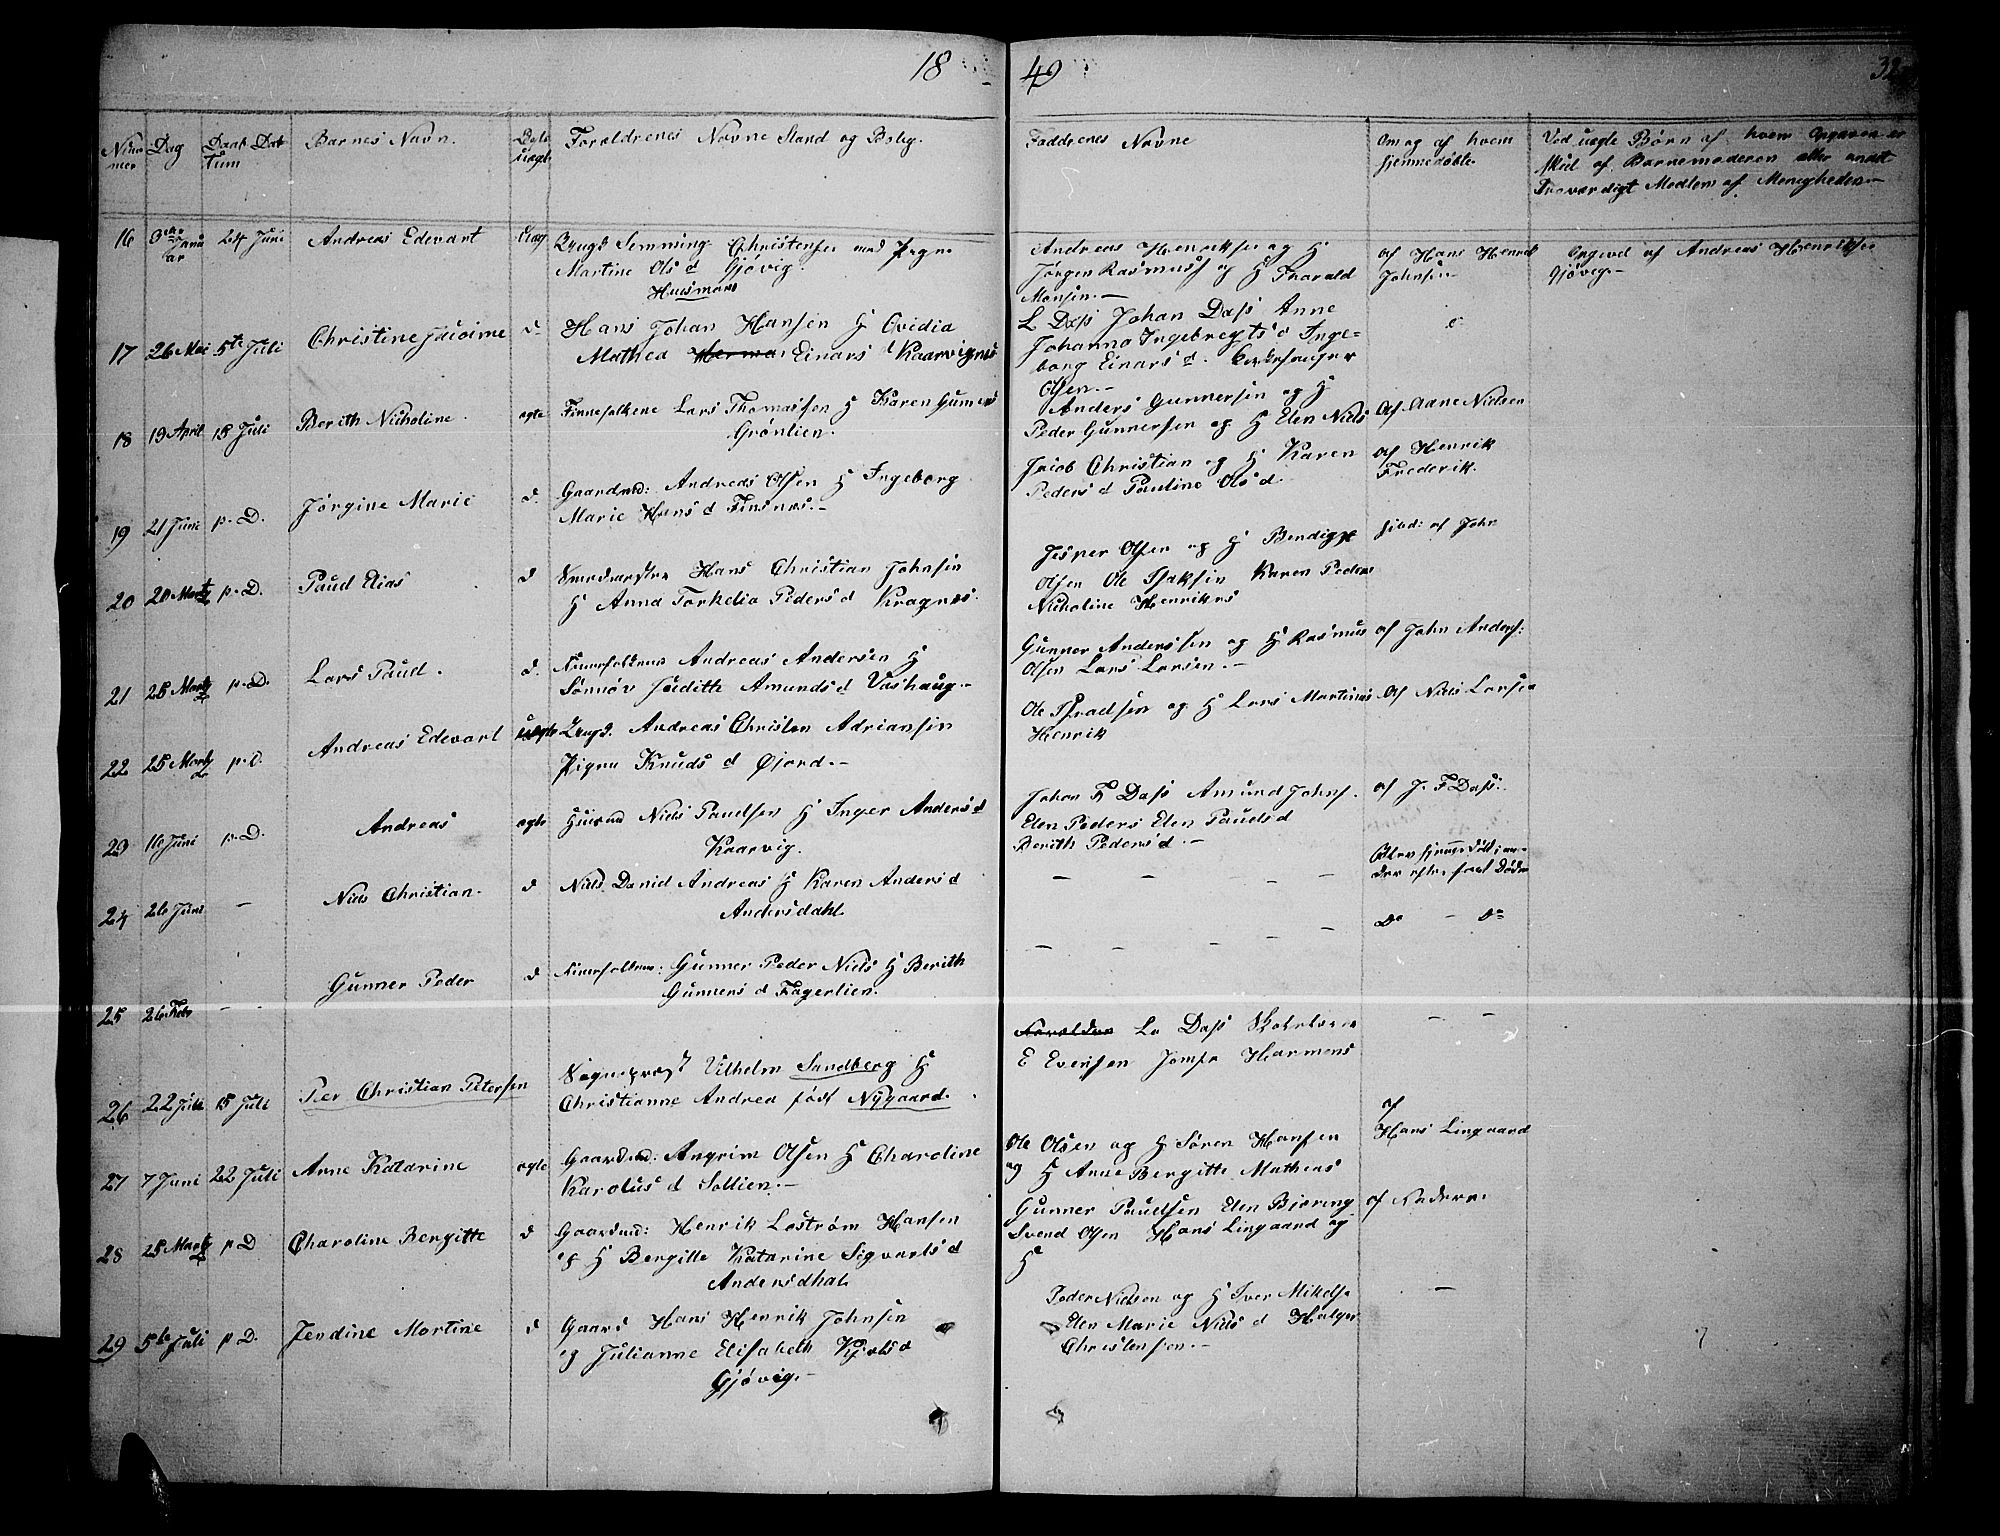 18 49
Num-
mer
Dag
Daab Dat
tum
Barnes Navn.
Forældrenes Navne Stand og Bolig.
Faddrenes Navne
Om og af hvem
hjemmedøbte
Ved uægte Børn af hvem Opgaven er
skeed af Barnemoderen eller andet
Troværdigt Medlem af Menigheden.—
16 Janu ar 24 Juni Andreas Edevart Uæg Ungk Semming Christensen med Pigen
Martine Ols d Gjøvig.
Andreas Henriksen og H
Jørgen Rasmuss og H Tharald
Monsen.—
af Hans Henrik
Johnsen
Opgivd af Andreas Henriksen
Gjøvig.—
17 26 Mai 5te Juli Christine
Huusmand
Hans Johan Hansen H Ovidia
Mathea Einars Kaarvignes
L Dass Johan Dass Anne
Johanna Ingebregts d Inge-
borg Einars d. Kirkesanger
Olsen.—
18 19 April 15 Juli Berith Nicholine. ægte Finnefolkene Lars Thomassen H Karen Gunners
Grønlien.
Anders Gunnersen og H
Peder Gunnersen og H Elen Niels
Af Aane Nielsen
19 21 Juni p. D. Jørgine Marie d. Gaardmd: Andreas Olsen H Ingeborg
Marie Hans d Finsnes.—
Jacob Christian og H Karen
Peders d Pauline Ols d
af Henrik
Frederik.
20 20 Martz p. D. Paul Elias d Hans Christian Johnsen
H Anna Torkelia Peders d Kragnes.
Jesper Olsen og H Bendigte
Olsen Ole Isaksen Karen Peders
Nicholine Henriks
af John
21 25 Martz p. D. Lars Paul. d. Andreas Andersen H
Sønnøv Judithe Amunds d Vashaug.—
Gunner Anderssen og H Rasmus
Olsen Lars Larsen.—
af John Anders:
22 25 Martz p. D. Andreas Edevart uægte Ungk. Andreas Christen Adriansen
Pigen Knuds d Øjord.—
Ole Isralsen og H Lars Martinus
Henrik
Af Niels Larsen
23 16 Juni p. D. Andreas ægte Huusmd Niels Paulsen H Inger Anders d
Kaarvig.
Johan F Dass Amund Johns.
Elen Peders Elen Pauls d
Berith Peders d.—
af J. F Dass:
24 26 Juni — Niels Christian. d Niels Daniel Andreas H Karen Anders d
Andersdahl
— — — —
Blev hjemmedøbt
25 26 Febr — Gunner Peder d Gunner Peder Niels H Berith
Gunners d Fagerlien.
— — — —
Do — Do
26 22 Juli 15 Juli Peer Christian Petersen
Sognepræst Vilhelm Sandberg H
Christianne Andrea født Nygaard.
L Dass Skolelærer
E Evensen Jomfr Harmens
— —
27 7 Juni 22 Juli Anne Katarine ægte Gaardmd: Angrim Olsen H Charoline
Karolus d Sollien.—
Ole Olsen og H Søren Hansen
og H Anne Bergitte Mathias
af
Hans Lingaard
28 25 Martz p D Charoline Bergitte d Gaardmd: Henrik Lostrøm Hansen
og H Bergitte Katarine Sigvarts d
Andersdhal
Gunner Paulsen Elen Bjøring
Svend Olsen Hans Lingaard og
H
af Faderen
29 5te Juli p D. Jendine Martine d Gaard Hans Henrik Johnsen
og Julianne Elisabeth Kjels d
Gjøvig.—
Peder Nielsen og H Iver Mikels
Elen Marie Niels d Holger
Christensen.—
—